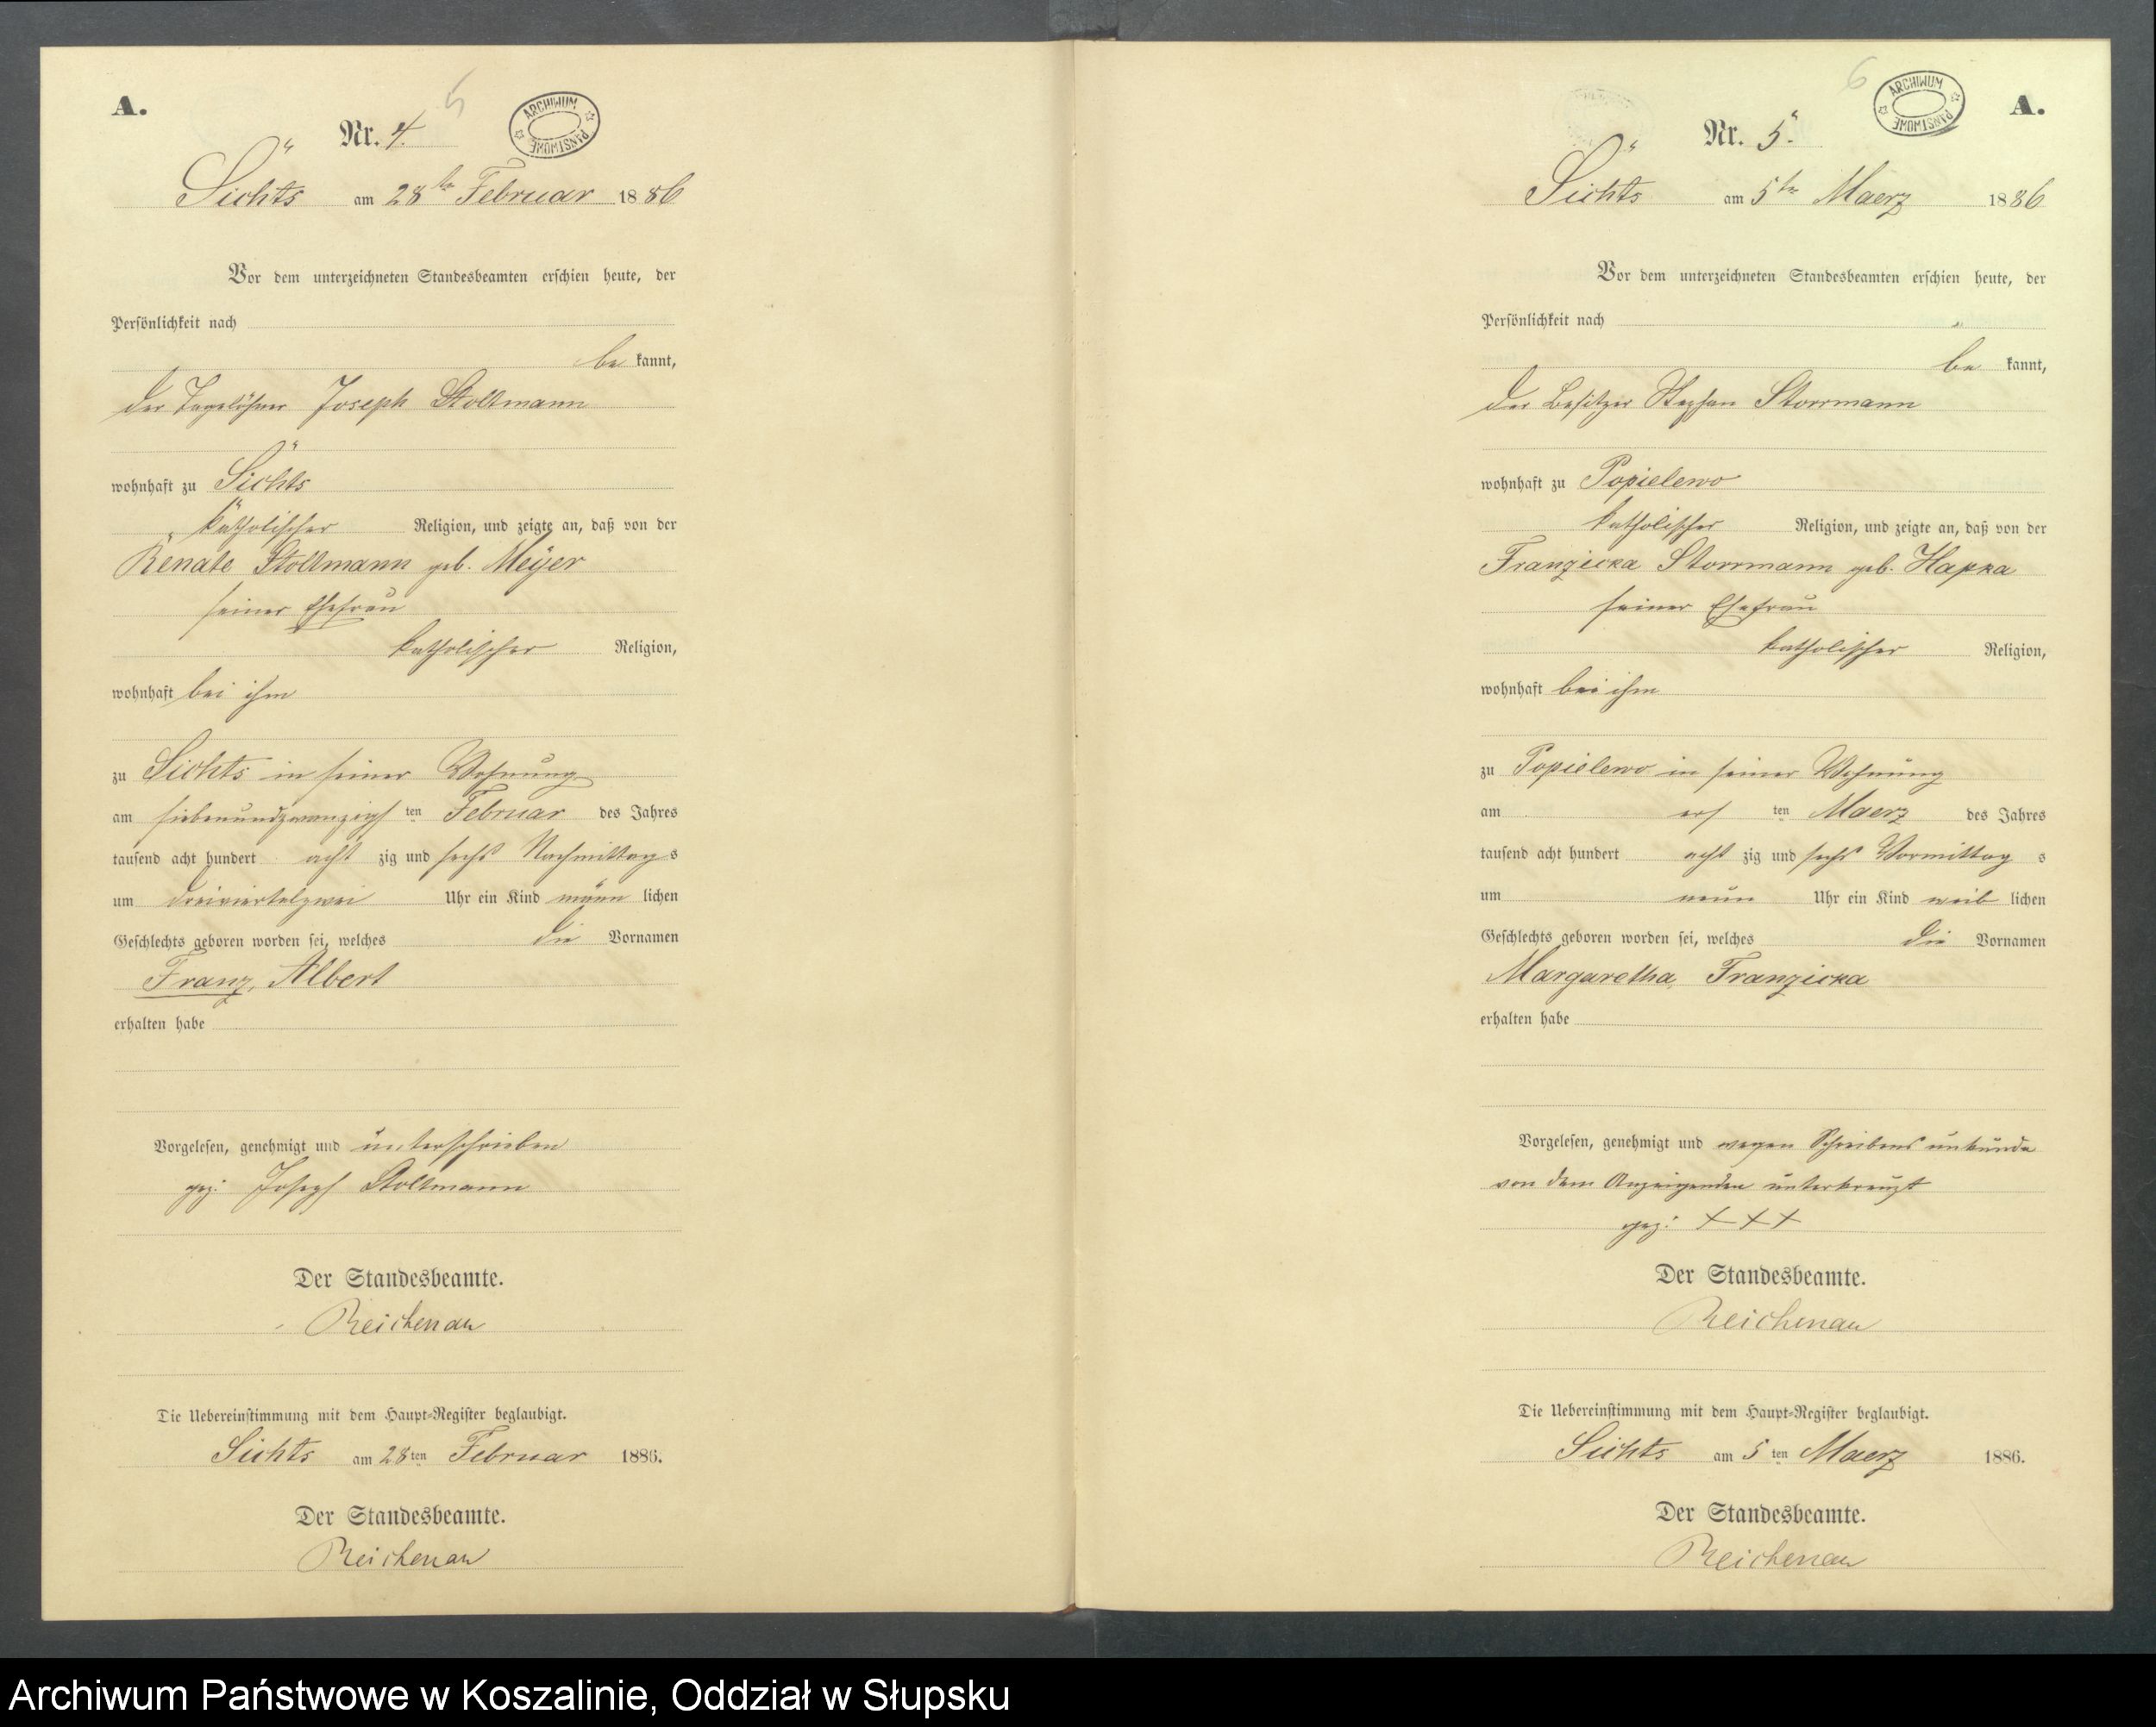 A.
5
Nr. 4.
ARCHIWUM PAŃSTWOWE
Sichts am 28ten Februar 1886
Vor dem unterzeichneten Standesbeamten erschien heute, der
Persönlichkeit nach
be kannt,
der Tagelöhner Joseph Stoltmann
wohnhaft zu Sichts
katholischer Religion, und zeigte an, daß von der
Renate Stoltmann geb. Meyer
seiner Ehefrau
katholischer Religion,
wohnhaft bei ihm
zu Sichts in seiner Wohnung
am siebenundzwanzigs ten Februar des Jahres
tausend acht hundert acht zig und sechs Nachmittag s
um dreiviertelzwei Uhr ein Kind männ lichen
Geschlechts geboren worden sei, welches die Vornamen
Franz, Albert
erhalten habe
Vorgelesen, genehmigt und unterschrieben
gez: Joseph Stoltmann
Der Standesbeamte.
Reichenau
Die Uebereinstimmung mit dem Haupt-Register beglaubigt.
Sichts am 28ten Februar 1886.
Der Standesbeamte.
Reichenau
6
ARCHIWUM PAŃSTWOWE
A.
Nr. 5.
Sichts am 5ten Maerz 1886
Vor dem unterzeichneten Standesbeamten erschien heute, der
Persönlichkeit nach
be kannt,
der Besitzer Stephan Storrmann
wohnhaft zu Popielewo
katholischer Religion, und zeigte an, daß von der
Franzicka Storrmann geb. Hapka
seiner Ehefrau
katholischer Religion,
wohnhaft bei ihm
zu Popielewo in seiner Wohnung
am ers ten Maerz des Jahres
tausend acht hundert acht zig und sechs Vormittag s
um neun Uhr ein Kind weib lichen
Geschlechts geboren worden sei, welches die Vornamen
Margaretha Franzicka
erhalten habe
Vorgelesen, genehmigt und wegen Schreibens unkunde
von dem Anzeigenden unterkreuzt
gez: + + +
Der Standesbeamte.
Reichenau
Die Uebereinstimmung mit dem Haupt-Register beglaubigt.
Sichts am 5 ten Maerz 1886.
Der Standesbeamte.
Reichenau
Archiwum Państwowe w Koszalinie, Oddział w Słupsku